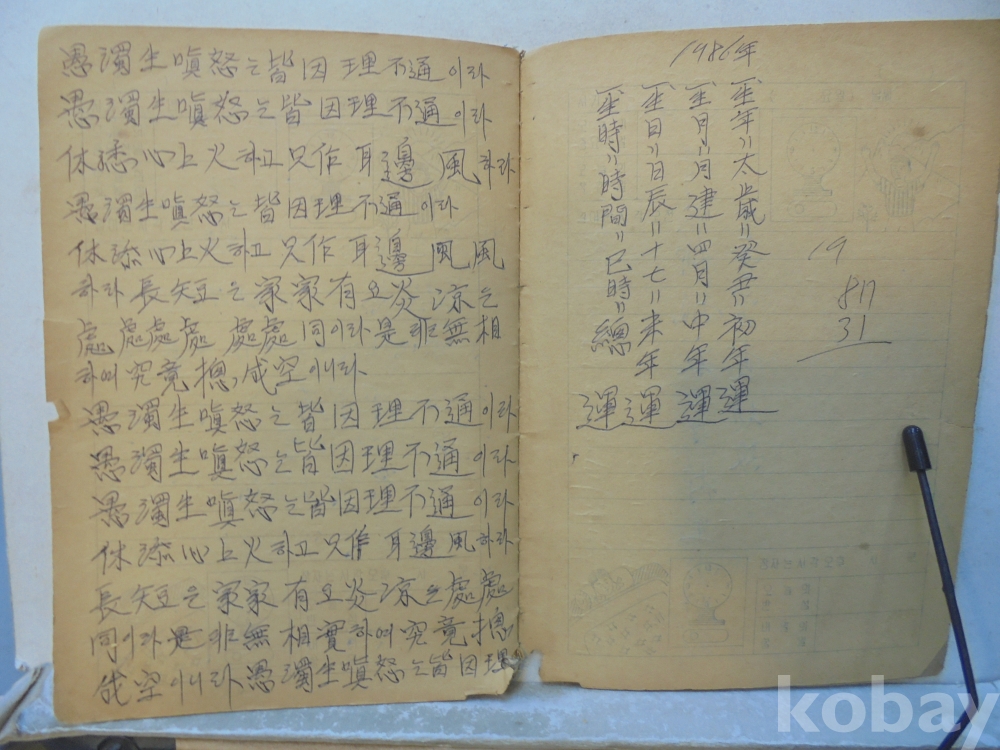 愚濁生嗔怒는皆因理不通이라
愚濁生嗔怒는皆因理不通이라
休添心上火하고只作耳邊風하라
愚濁生嗔怒는皆因理不通이라
休添心上火하고只作耳邊風風
하라長短은家家有오炎凉은
處處處處 處處同이라是非無相
하여究竟摠成空이니라
愚濁生嗔怒는皆因理不通이라
愚濁生嗔怒는皆因理不通이라
愚濁生嗔怒는皆因理不通이라
休添心上火하고只作耳邊風하라
長短은家家有오炎凉은處處
同이라是非無相實하여究竟摠
成空이니라愚濁生嗔怒는皆因理
1986年
生年〃太歲〃癸丑〃初年運
生月〃月建〃四月〃中年運
生日〃日辰〃十七〃末年運
生時〃時間〃巳時〃總運
19
817
31
kobay